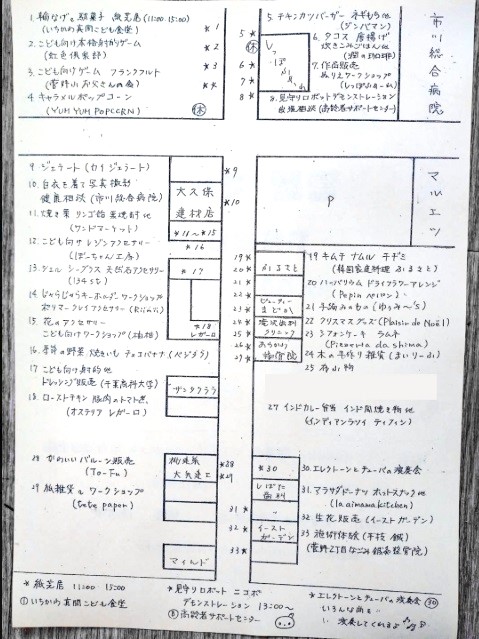 1. 輪なげ 駄菓子 紙芝居 (11:00.15:00)
(いちかわ真間こども食堂)
2. こども向け本格射的ゲーム
3. こども向けゲーム フランクフルト
(菅野山お父さんの会)
4. キャラメルポップコーン
(YUM YUM POPCORN)
*1
*2
*3
*4
休
5*
休
6*
7*
8*
5. チキンカツバーガー ネギもち他
(ジンパマン)
6. タコス 唐揚げ
炊きこみごはん他
7. 作品販売
ぬりえワークショップ
8. 見守りロボットデモンストレーション
(高齢者サポートセンター)
市川総合病院
9. ジェラート (カイジェラート)
10. 白衣を着て写真撮影
健康相談 (市川総合病院)
11. 焼き栗 リンゴ飴 黒焼酎他
(サンドマーケット)
12. こども向け レジンアクセサリー
(ぽーちゃん工房)
13. シェル シーグラス 天然石アクセサリー
14. じゃらじゃらキーホルダーワークショップ
15. 花のアクセサリー
こども向けワークショップ
16. 季節の野菜 焼きいも チョコバナナ (ベジタラ)
17. こども向け射的他
ドレッシング販売 (千葉商科大学)
18. ローストチキン 豚肉のトマト煮
(オステリア レガーロ)
*9
大久保
建材店
*10
*11〜*15
*16
*17
*18
レガーロ
サンタクララ
P
マルエツ
19*
20*
21*
22*
23*
24*
25*
26*
27*
ふるさと
ビューティー
まどか
滝沢歯科
クリニック
19 キムチ ナムル チヂミ
(韓国家庭料理 ふるさと)
20 ハーバリウム ドライフラワーアレンジ
(Pepin ペパン)
21 手編みもの (ゆぅみ〜S)
22 クリスマスグッズ (Plaisir de Noël)
23 シフォンケーキ ラムネ
(Pizzeria da shima)
24 木の手作り雑貨 (まいりーふ)
25 布小物
27 インドカレー弁当 インド風焼き物他
(インディアンラソイ ティフィン)
28 かわいいバルーン販売
(To-Fu)
29 紙雑貨とワークショップ
(tete papier)
*28
*29
マインド
*30
しばた
歯科
31*
32*
イースト
ガーデン
33*
30. エレクトーンとチューバの演奏会
31. アラサダドーナツ ホットスナック他
(laaimama kitchen)
32 生花販売 (イーストガーデン)
33 施術体験 (手技 鍼)
(菅野2丁目なごみ鍼灸整骨院)
* 紙芝居 11:00 15:00
① いちかわ真間こども食堂
* 見守りロボット ニコボ
デモンストレーション 13:00〜
⑧ 高齢者サポートセンター
* エレクトーンとチューバの演奏会 ㉚
いろんな曲を
演奏してくれるよ♪